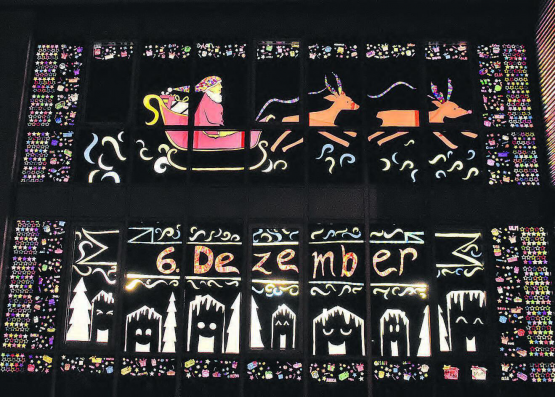 6. Dezember